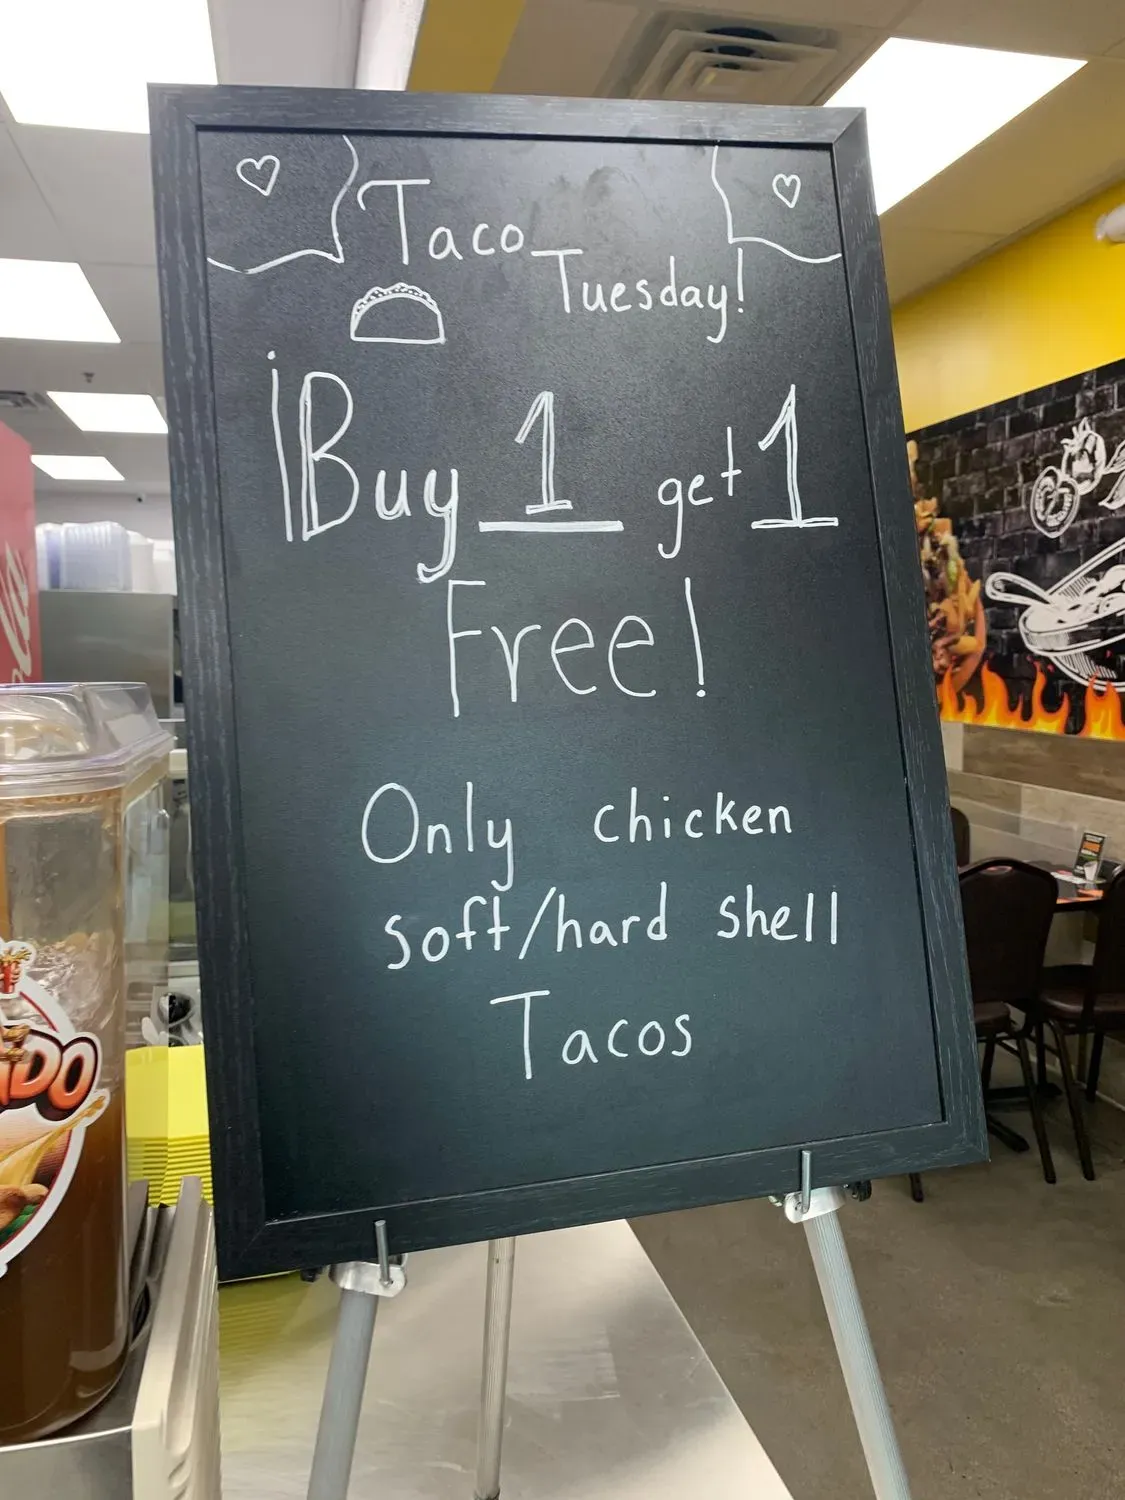 Taco
Tuesday!
¡Buy 1 get 1
Free!
Only chicken
soft/hard shell
Tacos